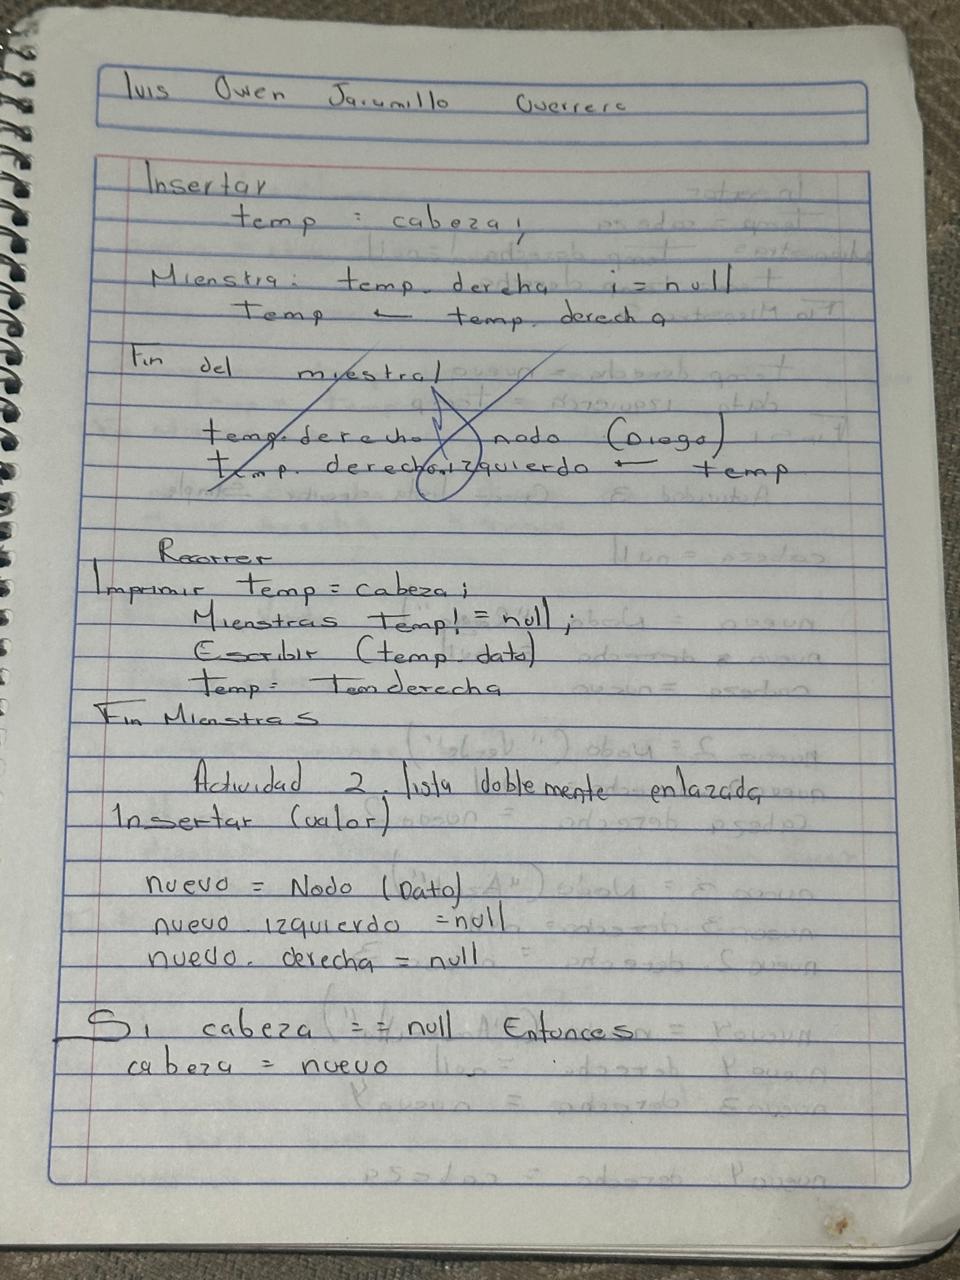 luis Owen Jaramillo Guerrero
Insertar
temp = cabeza;
Mienstra: temp. dercha i = null
Temp ← temp. derecha
Fin del miestral
temp. derecho nodo (Diego)
temp. derecho.izquierdo ← temp
Recorrer
Imprimir temp = cabeza;
Mienstras Temp! = null;
Escribir (temp. dato)
temp = Tem derecha
Fin Mienstras
Actividad 2. lista doblemente enlazada
Insertar (valor)
nuevo = Nodo (Dato)
nuevo. izquierdo = null
nuedo. derecha = null
Si cabeza == null Entonces
cabeza = nuevo